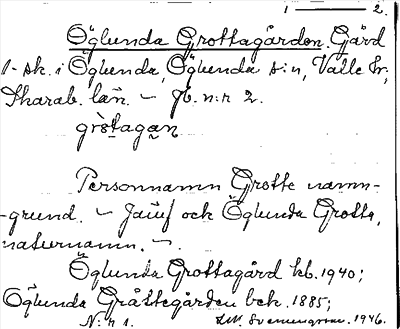 1 — 2.
Öglunda Grottagården. Gård
1- sk. i Öglunda, Öglunda s:n, Valle hr,
Skarab. län. — Jb. n:r 2.
gròtagan
Personnamn Grotte namn-
-grund. — Jämf ock Öglunda Grotta,
naturnamn. —.
Öglunda Grottagård kb. 1940;
Öglunda Gråttegården bek. 1885;
N:r 1.
1946.